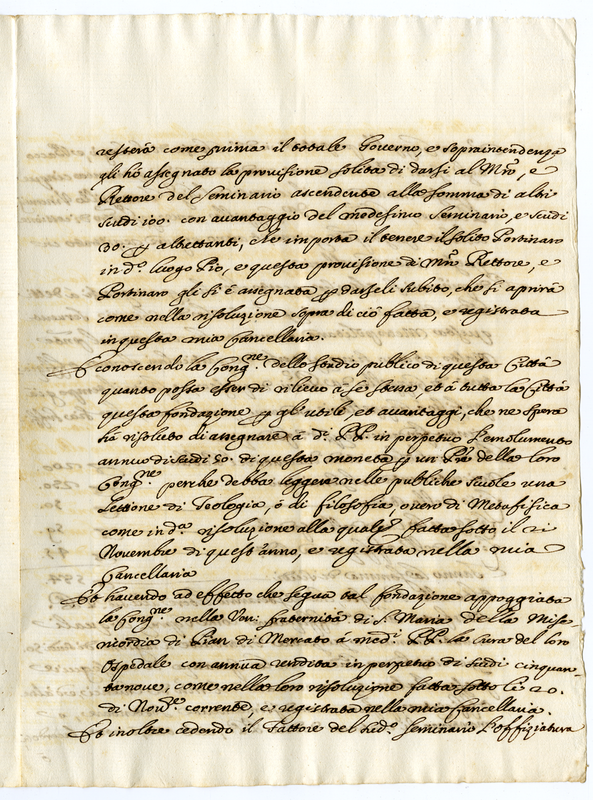 resterà come prima il totale Governo, e sopraintendenza
gli hò assegnato la provisione solita di darsi al Mro, e
Rettore del Seminario ascendente alla somma di altri
scudi 100. con avantaggio del medesimo Seminario, e scudi
30. p altrettanti, che importa il tenere il solito Portinaro
in do. luogo Pio, e questa provisione di Mro Rettore, e
Portinaro gli si è assegnata p darseli subito, che si aprirà
come nella risoluzione sopra di ciò fatta, e registrata
in questa mia Cancellaria.
E conoscendo la Congne. dello studio publico di questa Città
quanto possa esser di rilievo à se stessa, et à tutta la Città
questa fondazione p gl'utili, et avantaggi, che ne spera
hà risoluto di assegnare à di. PP. in perpetuo l'emolumento
annuo di scudi 50. di questa moneta p un Pre della loro
Congne. perche debba leggere nelle publiche scuole una
Lettione di Teologia, ò di filosofia, overo di Metafisica
come in da. risoluzione alla quale fatta sotto il 21
Novembre di quest'anno, e registrata nella mia
Cancellaria
Et havendo ad effetto che segua tal fondazione appoggiata
la Congne. nella Ven: fraternità di S. Maria della Mise-
ricordia di Pian di Mercato à medi. PP. la cura del loro
Ospedale con annua rendita in perpetuo di scudi cinquan-
tanove, come nella loro risoluzione fatta sotto li 20.
di Nove. corrente, e registrata nella mia Cancellaria.
Et inoltre cedendo il Fattore del sudo. Seminario l'offiziatura